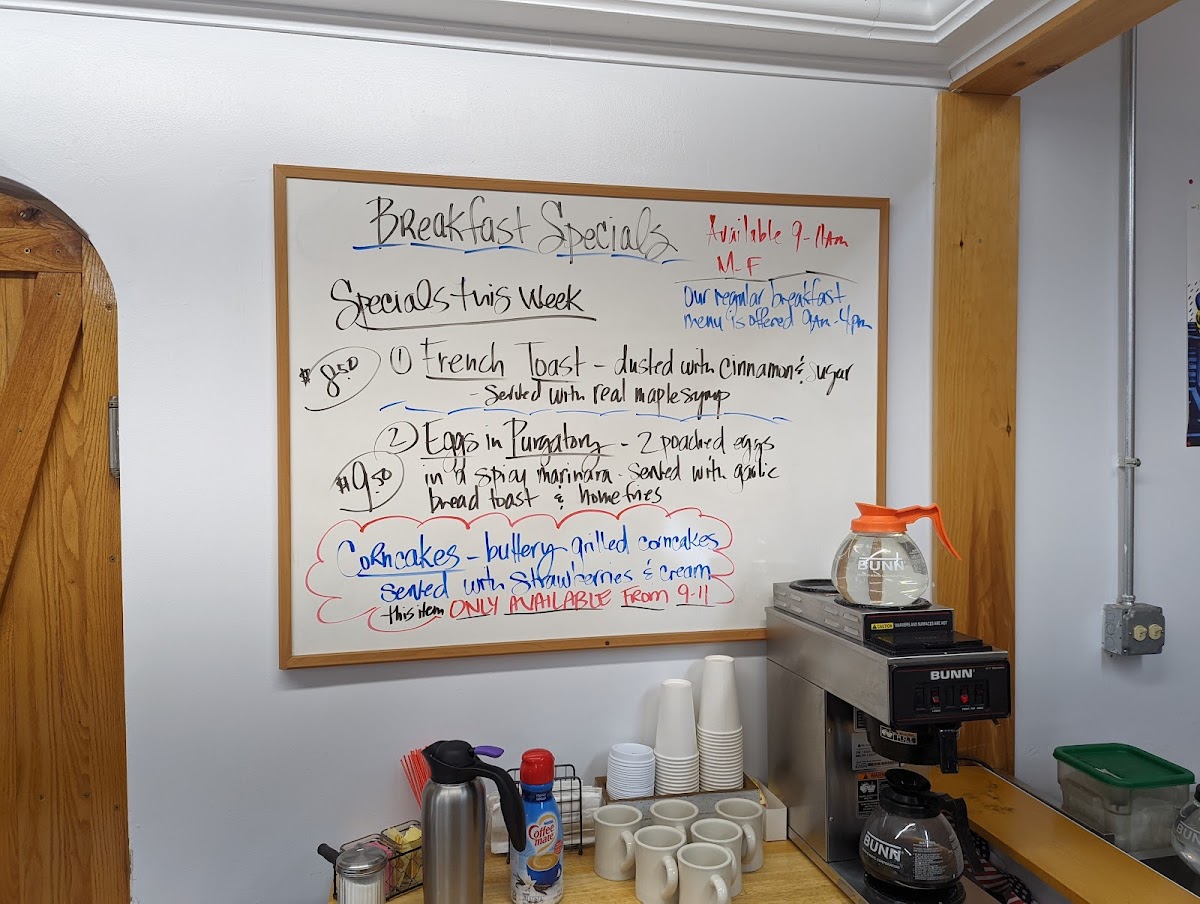 Breakfast Specials
Available 9-11am
M-F
Our regular breakfast
menu is offered 9am-4pm
Specials this Week
$8.50
1 French Toast - dusted with cinnamon & sugar
- Served with real maple syrup
2) Eggs in Purgatory - 2 poached eggs
$9.50
in a spicy marinara - served with garlic
bread toast & homefries
Corncakes - buttery grilled corncakes
served with strawberries & cream
this item ONLY AVAILABLE FROM 9-11
BUNN
CAUTION
BUNN
Nestle
Coffee
mate
BUNN